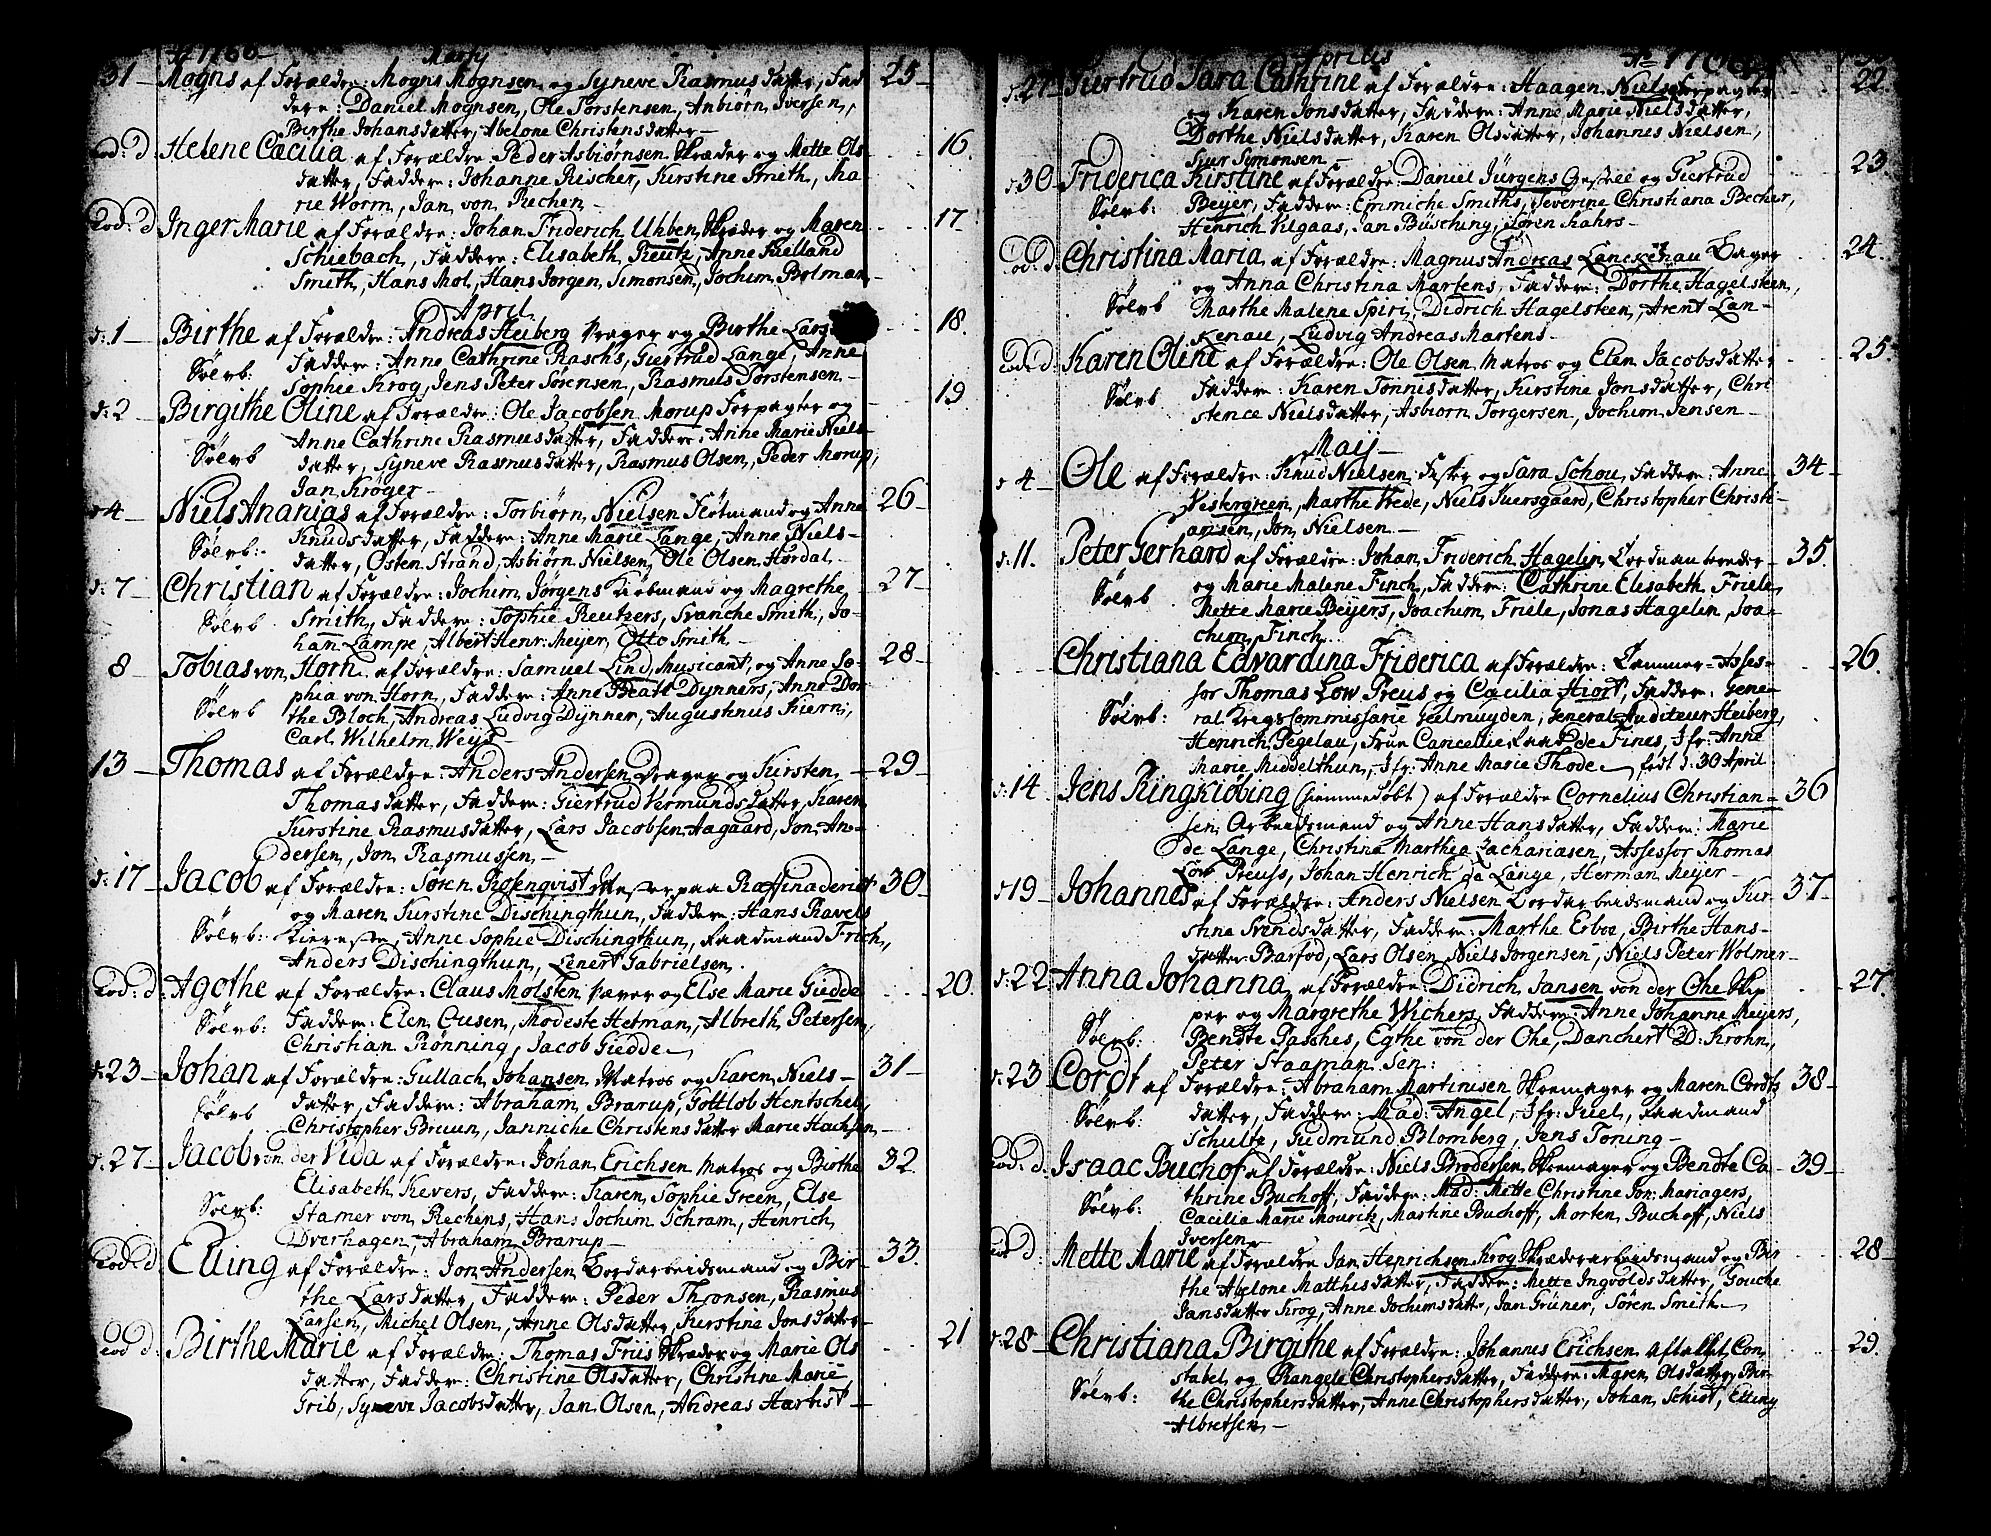 Ao 1786 Martj
31 Mogns af Forældre: Mogns Mognsen og Syneve Rasmusdatter, Fad- 25
dere: Daniel Mognsen, Ole Torstensen, Anbiørn Iversen,
Birthe Johansdatter, Abelone Christensdatter
Eod: d. Helene Cæcilia af Forældre: Peder Asbiørnsen Skræder og Mette Ols- 16.
datter, Faddere: Johanne Rischer, Kirstine Smith, Ma-
rie Worm, Jan von Rechen
Eod: d. Inger Marie af Forældre: Johan Friderich Uhben, Skræder og Maren 17
Schiebach, Faddere: Elisabeth Reutz, Anne Kielland
Smith, Hans Mol, Hans Jørgen Simonsen, Jochim Bolman
April.
d: 1 Birthe af Forældre: Andreas Heiberg Drager og Birthe Lars 18
Sølvb: Faddere: Anne Cathrine Rasch's, Giertrud Lange, Anne
Sophie Krog, Jens Peter Sørensen, Rasmus Torstensen
d: 2 Birgithe Oline af Forældre: Ole Jacobsen Morup Forpagter og 19
Anne Cathrine Rasmusdatter, Faddere: Anne Marie Niels-
Sølvb datter, Syneve Rasmusdatter, Rasmus Olsen, Peder Morup,
Jan Krøger
d 4 Niels Ananias af Forældre: Torbiørn Nielsen Flotmand og Anne 26
Sølvb: Knudsdatter, Faddere: Anne Marie Lange, Anne Niels-
datter, Osten Strand, Asbiørn Nielsen, Ole Olsen Hordal
d: 7 Christian af Forældre: Jochim Jørgens Kiøbmand og Magrethe 27
Sølvb Smith, Faddere: Sophie Reutzers, Svanche Smith, Jo-
han Lampe, Albert Henr: Meyer, Otto Smith
8 Tobias von Horn af Forældre: Samuel Lind Musicant, og Anne So- 28
phia von Horn, Faddere: Anne Beatt Dynners, Anne Dor-
Sølvb the Bloch, Andreas Ludvig Dynner, Augustinus Kiern,
Carl Wilhelm Weys
13 Thomas af Forældre: Anders Andersen Drager og Kirsten 29
Thomasdatter, Faddere: Giertrud Vermundsdatter, Karen
Kirstine Rasmusdatter, Lars Jacobsen Aagaard, Jon An-
dersen, Jon Rasmussen,
d: 17 Jacob af Forældre: Søren Rosenqvist Mester paa Raffinaderiet 30
og Maren Kirstine Dischingthun, Faddere: Hans Ravels
Sølvb: Anne Sophie Dischingthun, Raadmand Frich,
Anders Dischingthun, Lenert Gabrielsen.
Eod: d: Agothe af Forældre: Claus Molsten Væver og Else Marie Giedde 20.
Sølvb: Faddere: Elen Cusen, Modeste Hetman, Albreth Petersen,
Christian Rønning, Jacob Giedde
d: 23 Johan af Forældre: Gullach Johansen Matros og Karen Niels- 31
Sølvb datter, Faddere: Abraham Brarup, Gottlob Hentschel,
Christopher Bruun, Janniche Christensdatter Marie Hachsen
d: 27 Jacob von der Vida af Forældre: Johan Erichsen Matros og Birthe 32
Sølvb: Elisabeth Kevers, Faddere: Karen Sophie Green, Else
Stamer von Rechens, Hans Jochim Schram, Hinrich
Dverhagen, Abraham Brarup
Eod: d. Elling af Forældre: Jon Andersen Bordarbeidsmand og Bir- 33.
the Larsdatter, Faddere: Peder Thronsen, Rasmus
Larsen, Michel Olsen, Anne Olsdatter, Kirstine Jonsdatter
Eod d. Birthe Marie af Forældre: Thomas Friis Skræder og Marie Ols 21
datter, Faddere: Christine Olsdatter, Christine Marie
Grib, Syneve Jacobsdatter, Jan Olsen, Andreas Harbist
Aprilis Ao 1786
d: 27 Giertrud Sara Cathrine af Forældre: Haagen Niels Forpagter 22.
og Karen Jonsdatter, Faddere: Anne Marie Nielsdatter,
Dorthe Nielsdatter, Karen Olsdatter, Johannes Nielsen,
Siur Simonsen
d 30 Friderica Kirstine af Forældre: Daniel Jürgens og Giertrud 23.
Sølvb: Beyer, Faddere: Emmiche Smiths, Severine Christiana Becher,
Henrich Vilgaas, Jan Büsching, Søren Kahrs
Eod: d. Christina Maria, af Forældre: Magnus Andreas Lanckenau Bager 24.
og Anna Christina Martens, Faddere: Dorthe Hagelsteen,
Sølvb Marthe Malene Spiri, Didrich Hagelsteen, Arent Lan-
kenau, Ludvig Andreas Martens
Eod: d: Karen Oline af Forældre: Ole Olsen Matros og Elen Jacobsdatter 25.
Sølvb Faddere: Karen Tonnisdatter, Kirstine Jonsdatter, Chri-
stence Nielsdatter, Asbiørn Torgersen, Jochim Jensen
Maij
d 4 Ole af Forældre: Knud Nielsen Fisker og Sara Schou, Faddere: Anne 34
Vestergreen, Marthe Wede, Niels Suersgaard, Christopher Christi-
ansen, Jon Nielsen
d: 11. Peter Gerhard af Forældre: Johan Friderich Hagelin Corduanbereder 35.
Sølvb og Marie Malene Finch, Faddere: Cathrine Elisabeth Friele,
Mette Marie Beyers, Joachim Friele, Jonas Hagelin, Joa-
chim Finch
Christiana Edvardina Friderica af Forældre: Cammer-Asses- 26.
sor Thomas Low Preus og Cæcilia Hiort, Faddere: Gene-
Sølvb: ral Krigs Commissarie Geelmuyden, General-Auditeur Heiberg,
Henrich Pegelau, Frue Cancellie Raad de Fines, Jfr: Anne
Marie Middelthun, Jfr: Anne Marie Thode, født d: 30 April
d: 14 Jens Ringkiøbing (hiemmedøbt) af Forældre Cornelius Christian- 36
sen Arbeidsmand og Anne Hansdatter, Faddere: Marie
de Lange, Christina Marthea Zachariasen, Assessor Thomas
Low Preuss, Johan Henrich de Lange, Herman Meyer
d 19 Johannes af Forældre: Anders Nielsen Bordarbeidsmand og Kir- 37
stine Svendsdatter, Faddere: Marthe Erboe, Birthe Hans-
datter Barfod, Lars Olsen, Niels Jørgensen, Niels Peter Wolmer
d: 22 Anna Johanna af Forældre: Didrich Jansen von der Ohe Skip- 27.
per og Margrethe Wichers, Faddere: Anne Johanne Meyers,
Sølvb: Bendte Pasches, Egthe von der Ohe, Danchert D: Krohn,
Peter Staaman Sen:
d: 23 Cordt af Forældre: Abraham Martinusen Skomager og Maren Cordts 38
Sølvb: datter, Faddere: Mad: Angel, Jfr: Juel, Raadmand
Schultz, Gudmund Blomberg, Jens Toning
Eod: d. Isaac Buchof af Forældre: Niels Brodersen Skomager og Bendte Ca- 39
Sølvb: thrine Buchoff, Faddere: Mad: Mette Christine Jon: Mariagers,
Cæcilia Marie Mouritz, Martine Buchoff, Morten Buchoff, Niels
Iversen
Eod: d. Mette Marie af Forældre Jan Henrichsen Krog Skræderarbeidsmand og Bir 28
the Abelone Matthisdatter, Faddere: Mette Ingvoldsdatter, Gouche
Jansdatter Krog, Anne Jochimsdatter, Jan Grüner, Søren Smith
d: 28 Christiana Birgithe af Forældre: Johannes Erichsen aftallet Con- 29.
Sølvb: stabel og Rangele Christophersdatter, Faddere: Maren Olsdatter, Bir-
the Christophersdatter, Anne Christophersdatter, Johan Schidt, Elling
Albretsen